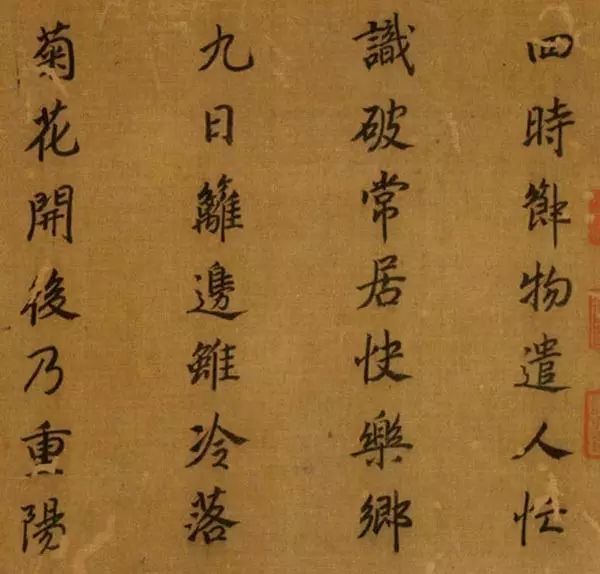 四時節物遣人忙
識破常居快樂鄉
九日籬邊雖冷落
菊花開後乃重陽